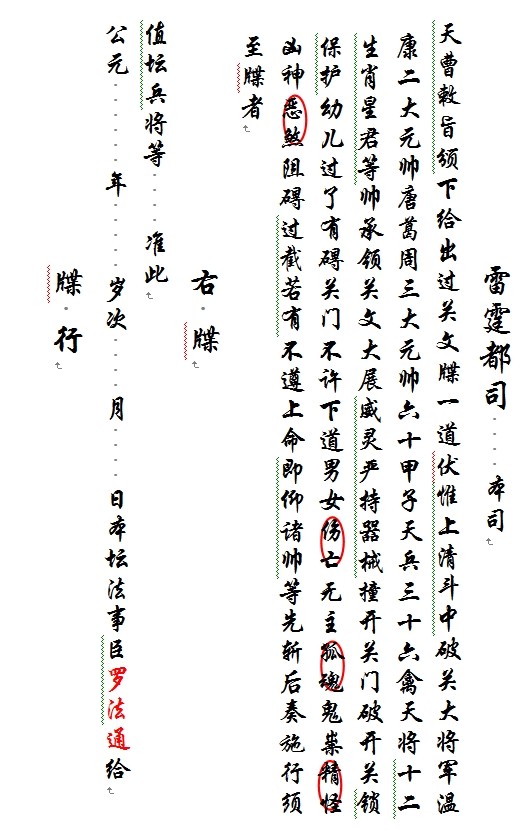 雷霆都司 本司
天曹敕旨颁下给出过关文牒一道伏惟上清斗中破关大将军温
康二大元帅唐葛周三大元帅六十甲子天兵三十六禽天将十二
生肖星君等帅承领关文大展威灵严持器械撞开关门破开关锁
保护幼儿过了有碍关门不许下道男女伤亡无主孤魂鬼祟精怪
凶神恶煞阻碍过截若有不遵上命即仰诸帅等先斩后奏施行须
至牒者
右 牒
值坛兵将等 准此
公元 年 岁次 月 日本坛法事臣罗法通给
牒 行